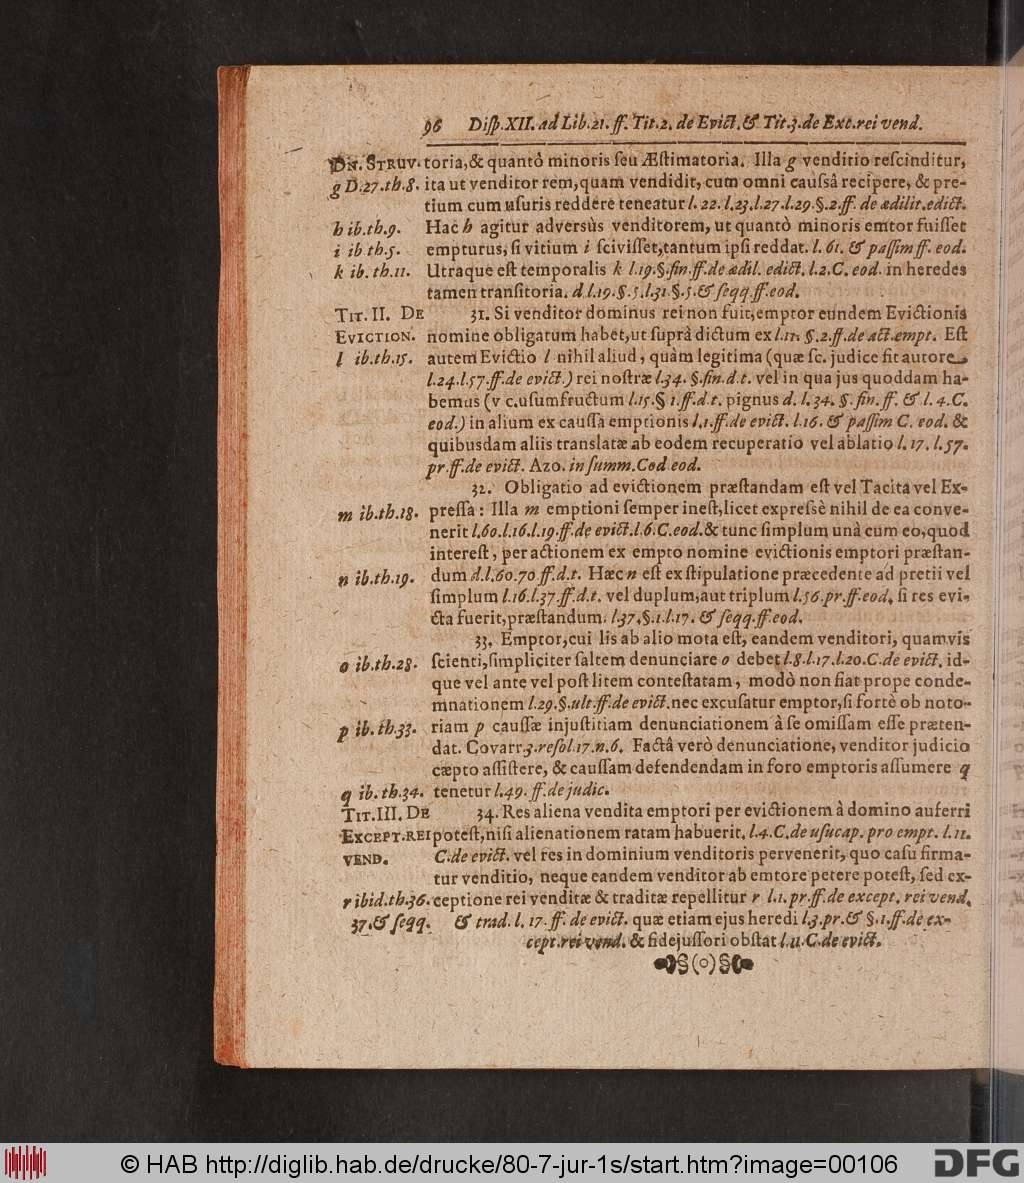 96 Diſp. XII. ad Lib. 21. ff. Tit. 2. de Evict. & Tit. 3. de Exc. rei vend.
DN. STRUV. toria, & quantò minoris ſeu Æſtimatoria. Illa g venditio reſcinditur,
g D. 27. th. 8. ita ut venditor rem, quam vendidit, cum omni cauſsâ recipere, & pre-
tium cum uſuris reddere teneatur l. 22. l. 23. l. 27. l. 29. §. 2. ff. de ædilit. edict.
h ib. th. 9. Hac h agitur adversùs venditorem, ut quantò minoris emtor fuiſſet
i ib th. 5. empturus, ſi vitium i ſciviſſet, tantum ipſi reddat. l. 61. & paſſim ff. eod.
k ib. th. 11. Utraque eſt temporalis k l. 19. §. fin. ff. de ædil. edict. l. 2. C. eod. in heredes
tamen tranſitoria. d. l. 19. §. 5. l. 31. §. 5. & ſeqq. ff. eod.
TIT. II. DE 31. Si venditor dominus rei non fuit, emptor eundem Evictionis
EVICTION. nomine obligatum habet, ut ſuprà dictum ex l. 11. §. 2. ff. de act. empt. Eſt
l ib. th. 15. autem Evictio l nihil aliud, quàm legitima (quæ ſc. judice fit autore
l. 24. l. 57. ff. de evict.) rei noſtræ l. 34. §. fin. d. t. vel in qua jus quoddam ha-
bemus (v c. uſumfructum l. 15. § 1. ff. d. t. pignus d. l. 34. §. fin. ff. & l. 4. C.
eod.) in alium ex cauſſa emptionis l. 1. ff. de evict. l. 16. & paſſim C. eod. &
quibusdam aliis translatæ ab eodem recuperatio vel ablatio l. 17. l. 57.
pr. ff. de evict. Azo. in ſumm. Cod eod.
32. Obligatio ad evictionem præſtandam eſt vel Tacita vel Ex-
m ib. th. 18. preſſa: Illa m emptioni ſemper ineſt, licet expreſsè nihil de ea conve-
nerit l. 60. l. 16. l. 19. ff. de evict. l. 6. C. eod. & tunc ſimplum unà cum eo, quod
intereſt, per actionem ex empto nomine evictionis emptori præſtan-
n ib. th. 19. dum d. l. 60. 70 ff. d. t. Hæc n eſt ex ſtipulatione præcedente ad pretii vel
ſimplum l. 16. l. 37. ff. d. t. vel duplum, aut triplum l. 56. pr. ff. eod. ſi res evi-
cta fuerit, præſtandum. l. 37. §. 1. l. 17. & ſeqq. ff. eod.
33. Emptor, cui lis ab alio mota eſt, eandem venditori, quamvis
o ib. th. 28. ſcienti, ſimpliciter ſaltem denunciare o debet l. 8. l. 17. l. 20. C. de evict. id-
que vel ante vel poſt litem conteſtatam, modò non fiat prope conde-
mnationem l. 29. §. ult. ff. de evict. nec excuſatur emptor, ſi fortè ob noto-
p ib. th. 33. riam p cauſſæ injuſtitiam denunciationem à ſe omiſſam eſſe præten-
dat. Covarr. 3. reſol. 17. n. 6. Factâ verò denunciatione, venditor judicio
cæpto aſſiſtere, & cauſſam defendendam in foro emptoris aſſumere q
q ib. th. 34. tenetur l. 49. ff. de judic.
TIT. III. DE 34. Res aliena vendita emptori per evictionem à domino auferri
EXCEPT. REI poteſt, niſi alienationem ratam habuerit. l. 4. C. de uſucap. pro empt. l. 11.
VEND. C. de evict. vel res in dominium venditoris pervenerit, quo caſu firma-
tur venditio, neque eandem venditor ab emtore petere poteſt, ſed ex-
r ibid. th. 36. ceptione rei venditæ & traditæ repellitur r l. 1. pr. ff. de except. rei vend.
37. & ſeqq. & trad. l. 17. ff. de evict. quæ etiam ejus heredi l. 3. pr. & §. 1. ff. de ex-
cept. rei vend. & fidejuſſori obſtat l. 11. C. de evict.
§(o)§
© HAB http://diglib.hab.de/drucke/80-7-jur-1s/start.htm?image=00106
DFG